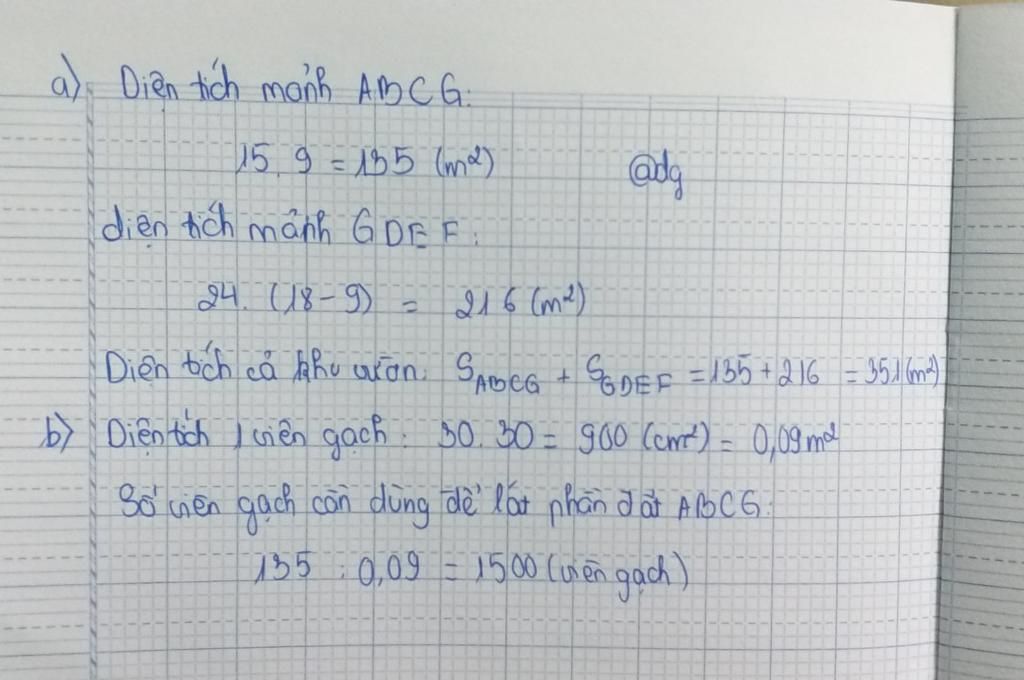 a) Diện tích mảnh ABCG:
15.9 = 135 (m²)
@dg
diện tích mảnh GDEF:
24. (18-9) = 216 (m²)
Diện tích cả khu vườn: S_ABCG + S_GDEF = 135 + 216 = 351 (m²)
b) Diện tích 1 viên gạch: 30.30 = 900 (cm²) = 0,09 m²
Số viên gạch cần dùng để lát phần đất ABCG:
135 : 0,09 = 1500 (viên gạch)